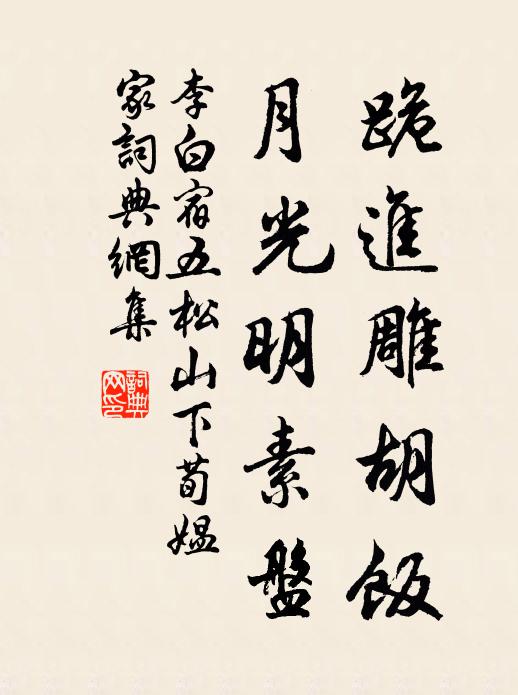 跪進雕胡飯
月光明素盤
李白宿五松山下荀媼
家詞典網集
詞典
网印